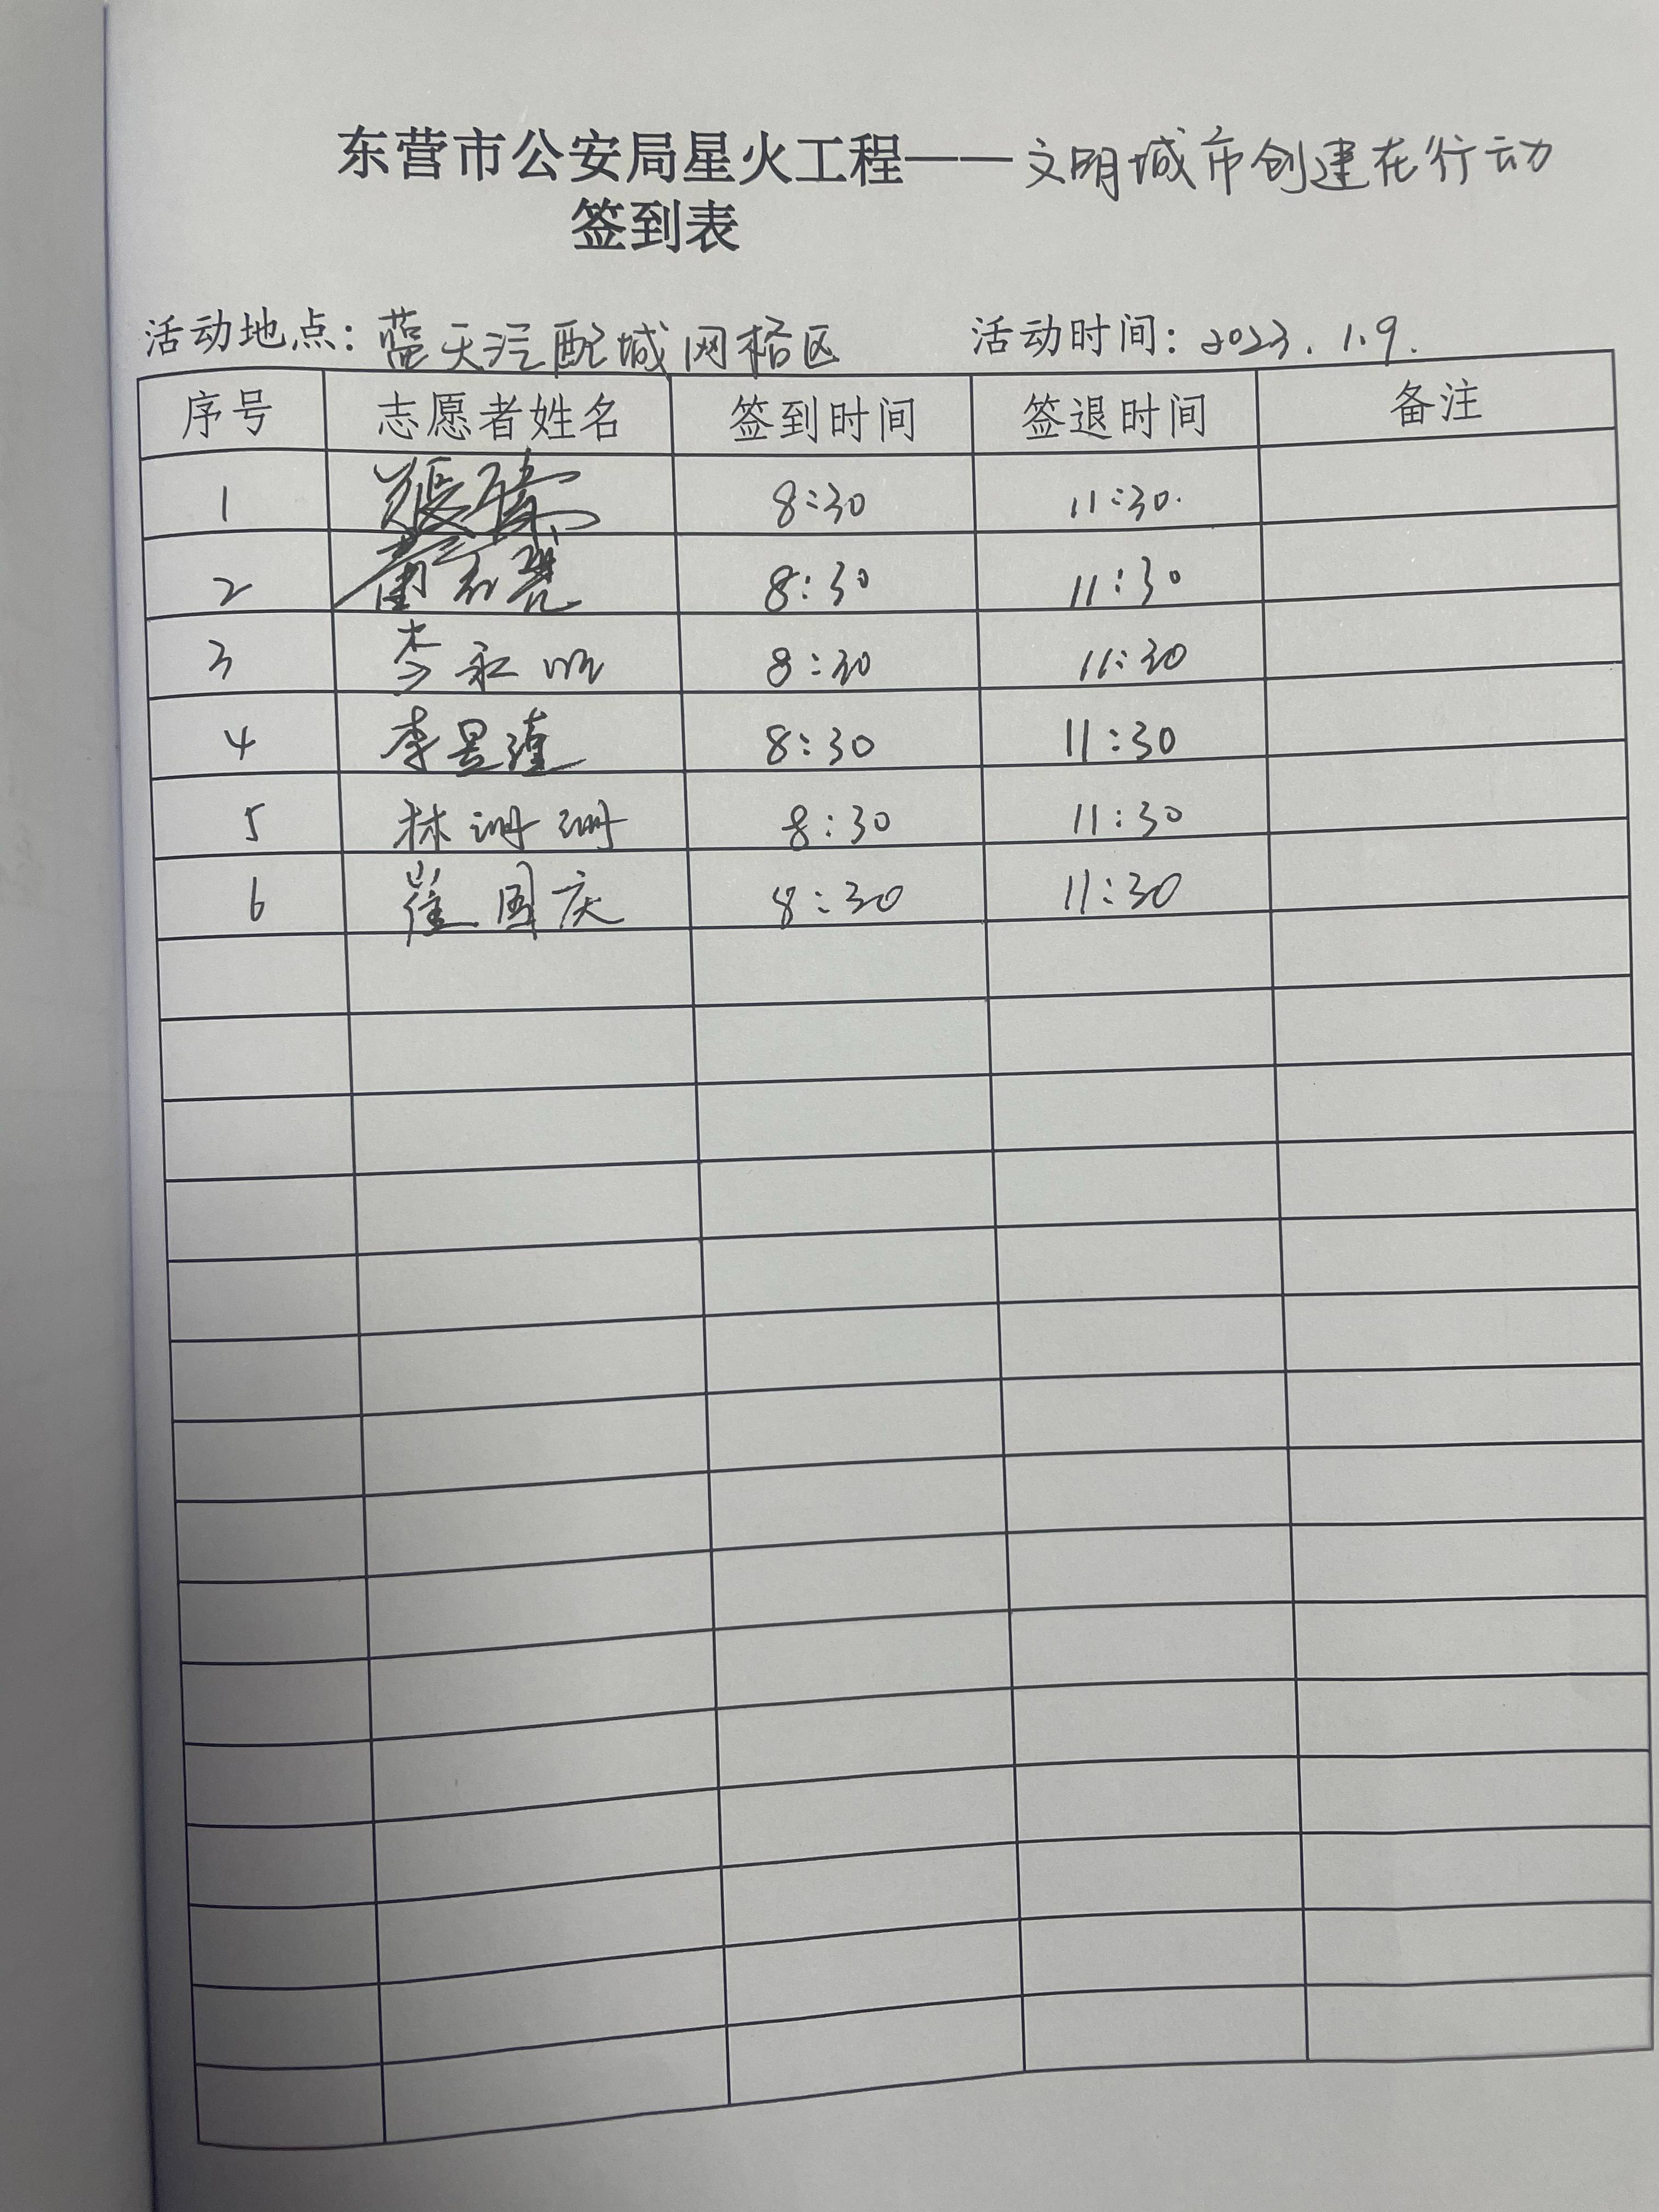 东营市公安局星火工程——文明城市创建在行动
签到表
活动地点：蓝天汽配城网格区 活动时间：2023.1.9.
序号 志愿者姓名 签到时间 签退时间 备注
1 张 8:30 11:30.
2 8:30 11:30
3 李 8:30 11:30
4 李景瑾 8:30 11:30
5 林珊珊 8:30 11:30
6 崔国庆 8:30 11:30